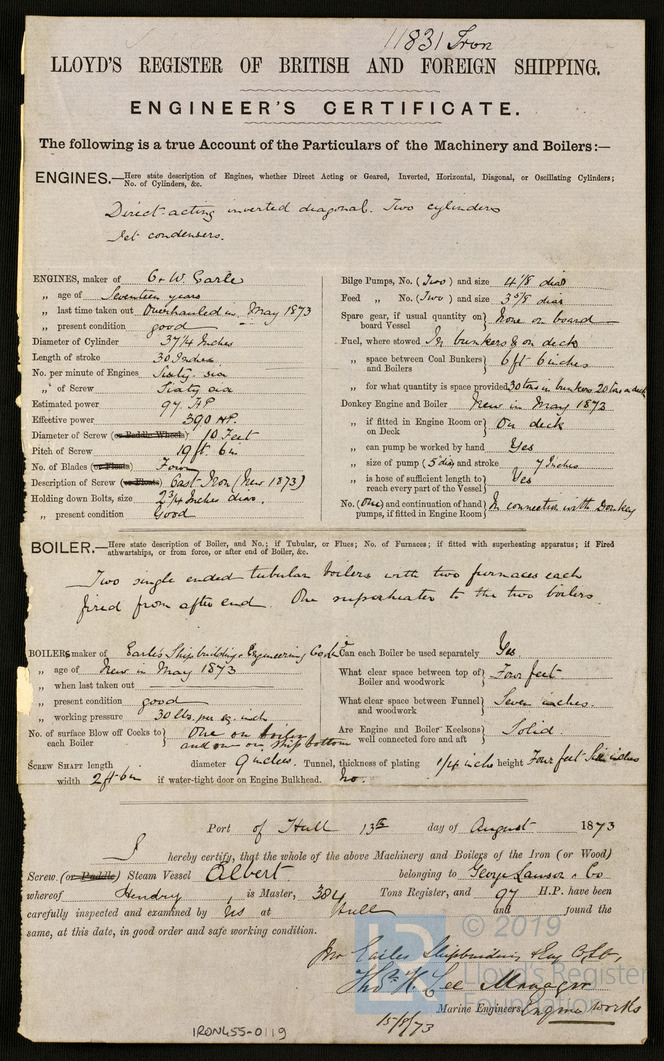 11831 Iron
LLOYD'S REGISTER OF BRITISH AND FOREIGN SHIPPING.
ENGINEER'S CERTIFICATE.
The following is a true Account of the Particulars of the Machinery and Boilers:—
ENGINES.—Here state description of Engines, whether Direct Acting or Geared, Inverted, Horizontal, Diagonal, or Oscillating Cylinders;
No. of Cylinders, &c.
Direct-acting inverted diagonal. Two cylinders
Jet condensers.
ENGINES, maker of C & W. Earle
„ age of Seventeen years
„ last time taken out Overhauled in May 1873
„ present condition good
Diameter of Cylinder 37 1/4 Inches
Length of stroke 30 Inches
No. per minute of Engines Sixty. six
„ of Screw Sixty six
Estimated power 97 HP
Effective power 390 HP.
Diameter of Screw (or Paddle Wheels) 10 Feet
Pitch of Screw 19 ft 6 in
No. of Blades (or Floats) Four
Description of Screw (or Floats) Cast-Iron (New 1873)
Holding down Bolts, size 2 3/4 Inches diar.
„ present condition Good
Bilge Pumps, No. (Two) and size 4 1/8 diar
Feed „ No. (Two) and size 3 5/8 diar
Spare gear, if usual quantity on board Vessel } None on board
Fuel, where stowed In bunkers & on deck
„ space between Coal Bunkers and Boilers } 6 ft 6 inches
„ for what quantity is space provided 30 tons in bunkers 20 tons on deck
Donkey Engine and Boiler New in May 1873
„ if fitted in Engine Room or on Deck } On deck
„ can pump be worked by hand Yes
„ size of pump (5 dia) and stroke 7 Inches
„ is hose of sufficient length to reach every part of the Vessel } Yes
No. (One) and continuation of hand pumps, if fitted in Engine Room } In connection with Donkey
BOILER.—Here state description of Boiler, and No.; if Tubular, or Flues; No. of Furnaces; if fitted with superheating apparatus; if Fired
athwartships, or from force, or after end of Boiler, &c.
Two single ended tubular boilers with two furnaces each
fired from after end. One superheater to the two boilers.
BOILERs maker of Earle's Shipbuilding & Engineering Co Ld
„ age of New in May 1873
„ when last taken out
„ present condition good
„ working pressure 30 lbs. per sq. inch
No. of surface Blow off Cocks to each Boiler } One on boiler and one on ship bottom
Can each Boiler be used separately Yes.
What clear space between top of Boiler and woodwork } Four feet
What clear space between Funnel and woodwork } Seven inches.
Are Engine and Boiler Keelsons well connected fore and aft } Solid.
SCREW SHAFT length diameter 9 inches. Tunnel, thickness of plating 1/4 inch height Four feet Six inches
width 2 ft 6 in if water-tight door on Engine Bulkhead. No.
Port of Hull 13th day of August 1873
I hereby certify, that the whole of the above Machinery and Boilers of the Iron (or Wood)
Screw (or Paddle) Steam Vessel Albert belonging to George Lawson & Co
whereof Hendry, is Master, 384 Tons Register, and 97 H.P. have been
carefully inspected and examined by us at Hull and found the
same, at this date, in good order and safe working condition.
pro Earles Shipbuilding & Eng Co Ld,
Thos H. Lee Manager
Marine Engineers, Engine Works
15/8/73
IRON455-0119
© 2019
Lloyd's Register
Foundation